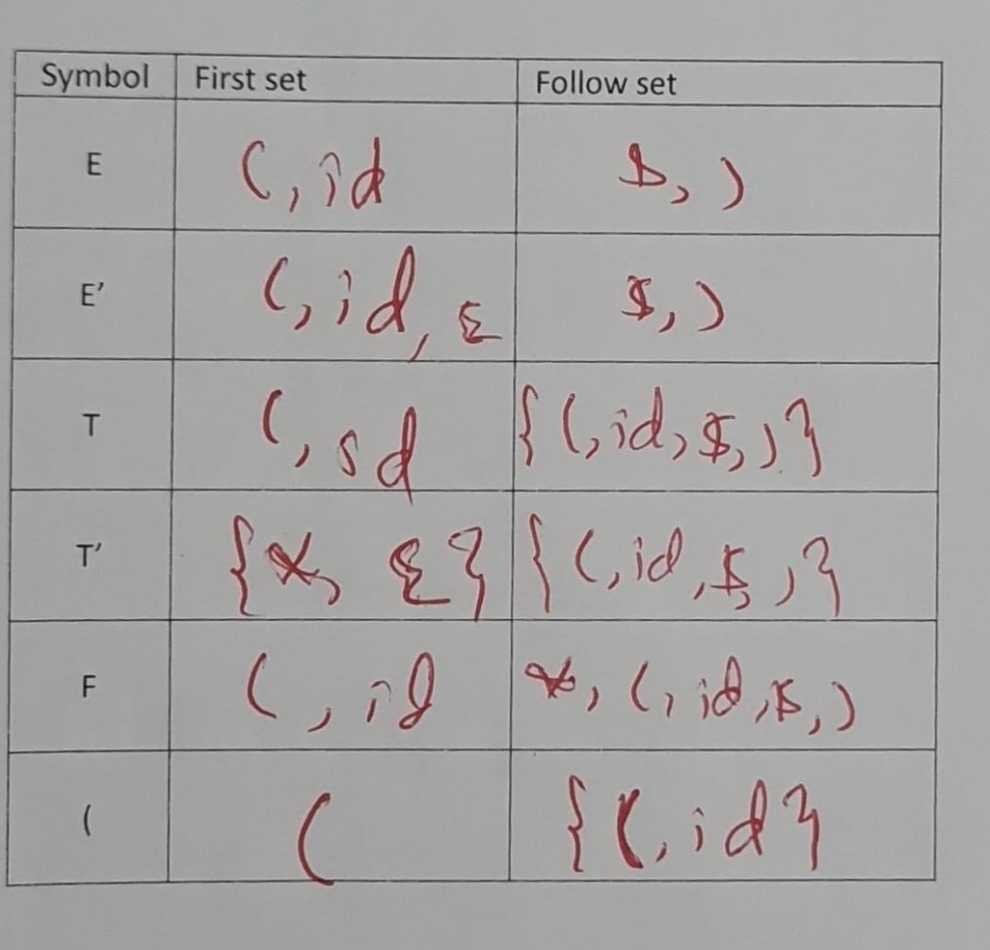 Symbol First set Follow set
E (, id $, )
E' (, id, ε $, )
T (, sd {(, id, $, )}
T' {*, ε} {(, id, $, )}
F (, id *, (, id, $, )
( ( {(, id}